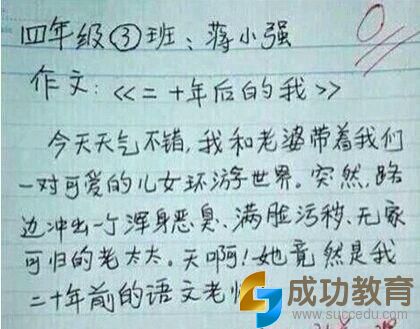 四年级③班：蒋小强
0
作文：<<二十年后的我>>
今天天气不错，我和老婆带着我们
一对可爱的儿女环游世界。突然，路
边冲出一个浑身恶臭、满脸污秽、无家
可归的老太太。天啊！她竟然是我
二十年前的语文老
成功教育
www.succedu.com